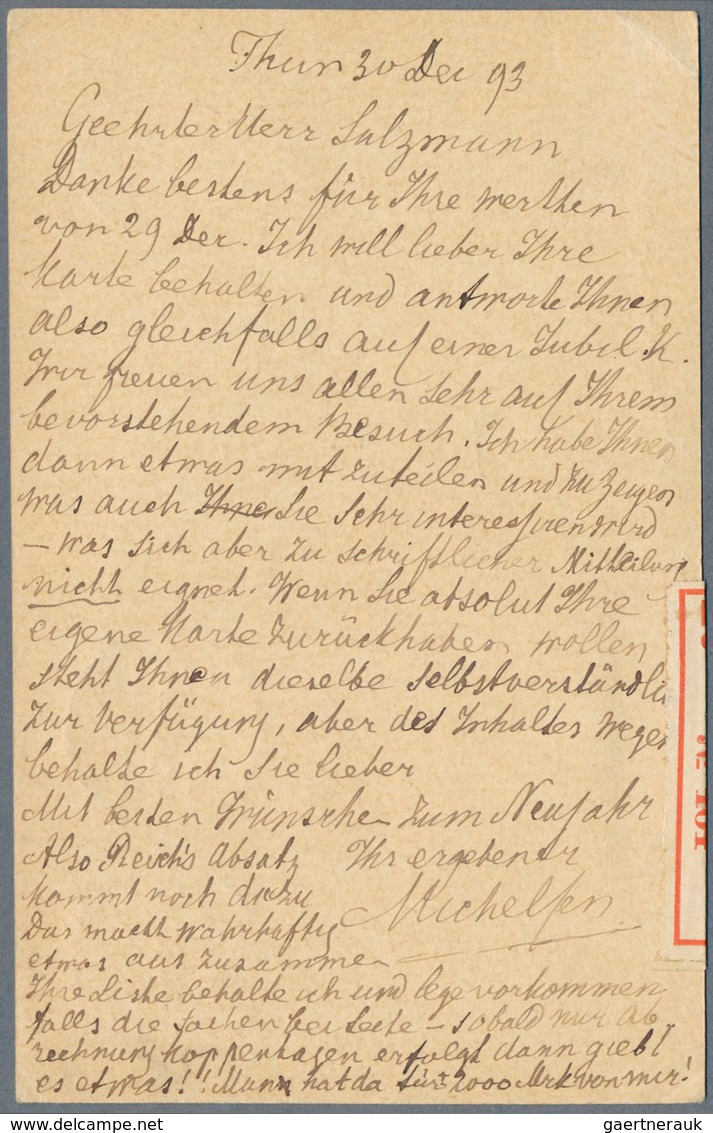 Thun 30 Dec 93
Geehrter Herr Salzmann
Danke bestens für Ihre werthen
von 29 Dec. Ich will lieber Ihre
Karte behalten und antworte Ihnen
also gleichfalls auf einer Jubil. K.
Wir freuen uns allen sehr auf Ihrem
bevorstehendem Besuch. Ich habe Ihnen
dann etwas mit zuteilen und zu zeigen
was auch Ihne Sie sehr interessiren wird
– was sich aber zu schriftlicher Mitteilung
nicht eignet. Wenn Sie absolut Ihre
eigene Karte zurückhaben wollen
steht Ihnen dieselbe selbstverständli
zur Verfügung, aber des Inhaltes wegen
behalte ich Sie lieber
Mit besten Wünschen zum Neujahr
Also Reich's Absatz Ihr ergebener
kommt noch dazu Michelsen
Das macht wahrhaftig
etwas aus zusammen
Ihre Liste behalte ich und lege vorkommen
falls die Sachen bei Seite – sobald nur ab
rechnung Koppenhagen erfolgt dann giebt
es etwas!! Mann hat da für 2000 Mrk von mir!
№ 101
gaertnerauk